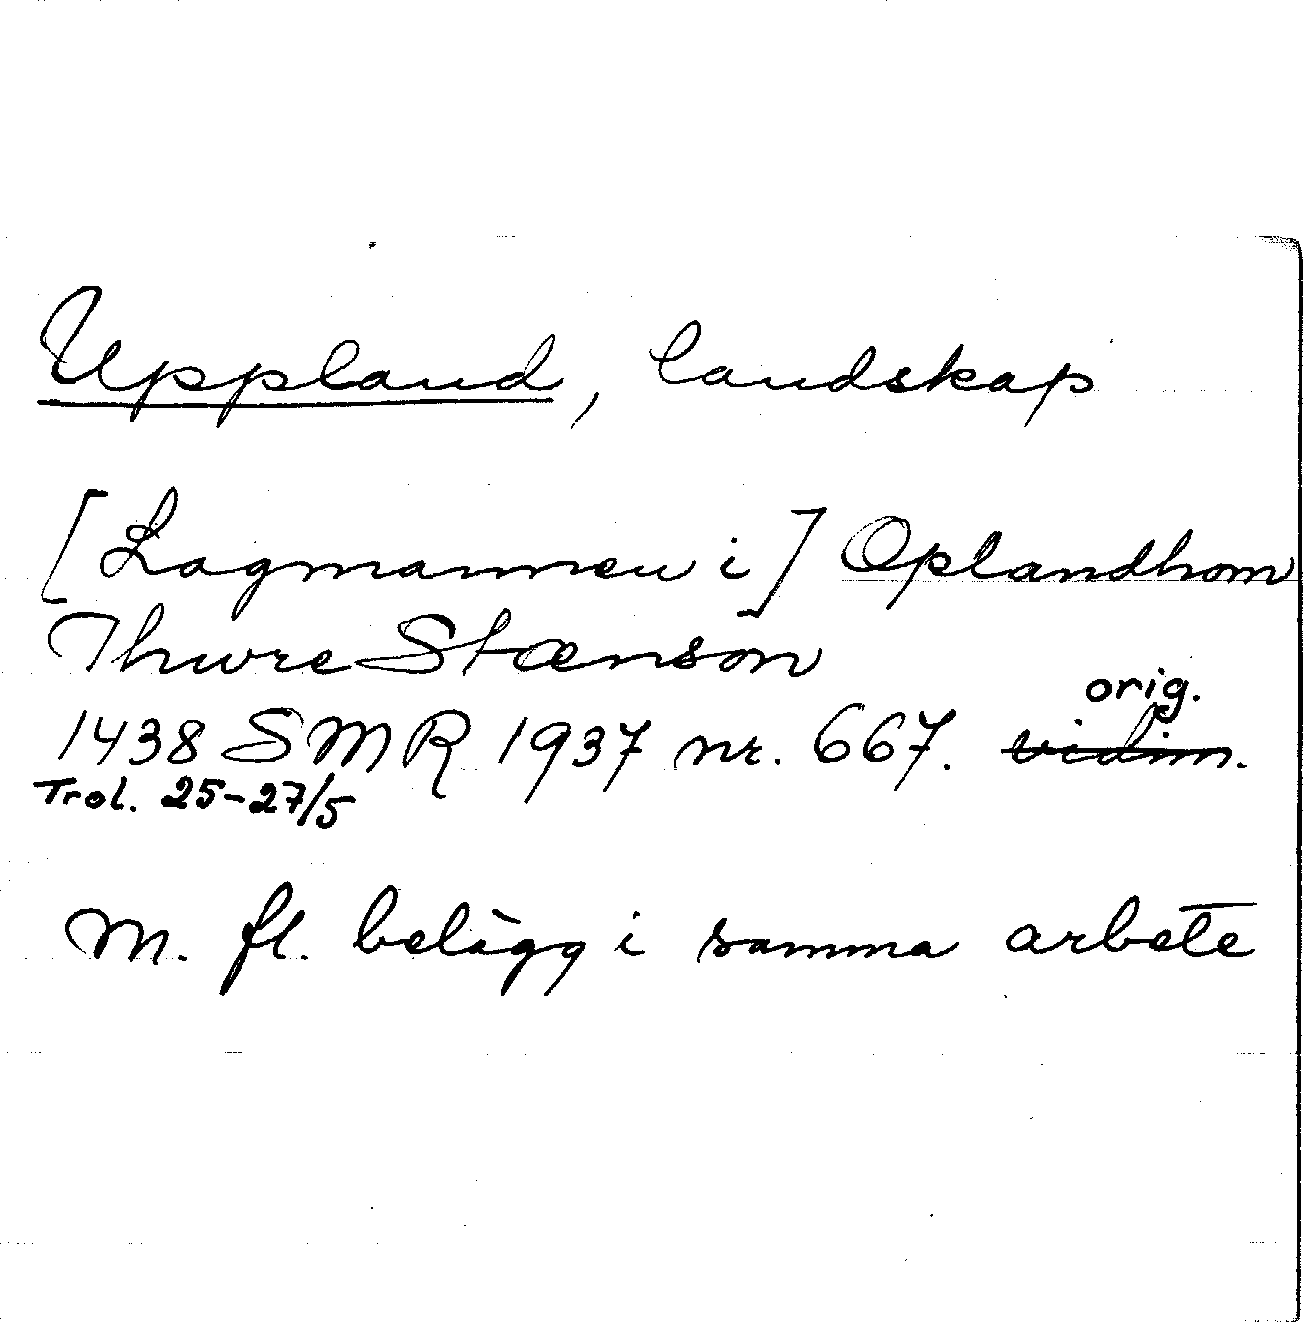 Uppland, landskap
[Lagmannen i] Oplandhom
Thure Stænson
orig.
1438 SMR 1937 nr. 667. vidim.
Trol. 25-27/5
m. fl. belägg i samma arbete